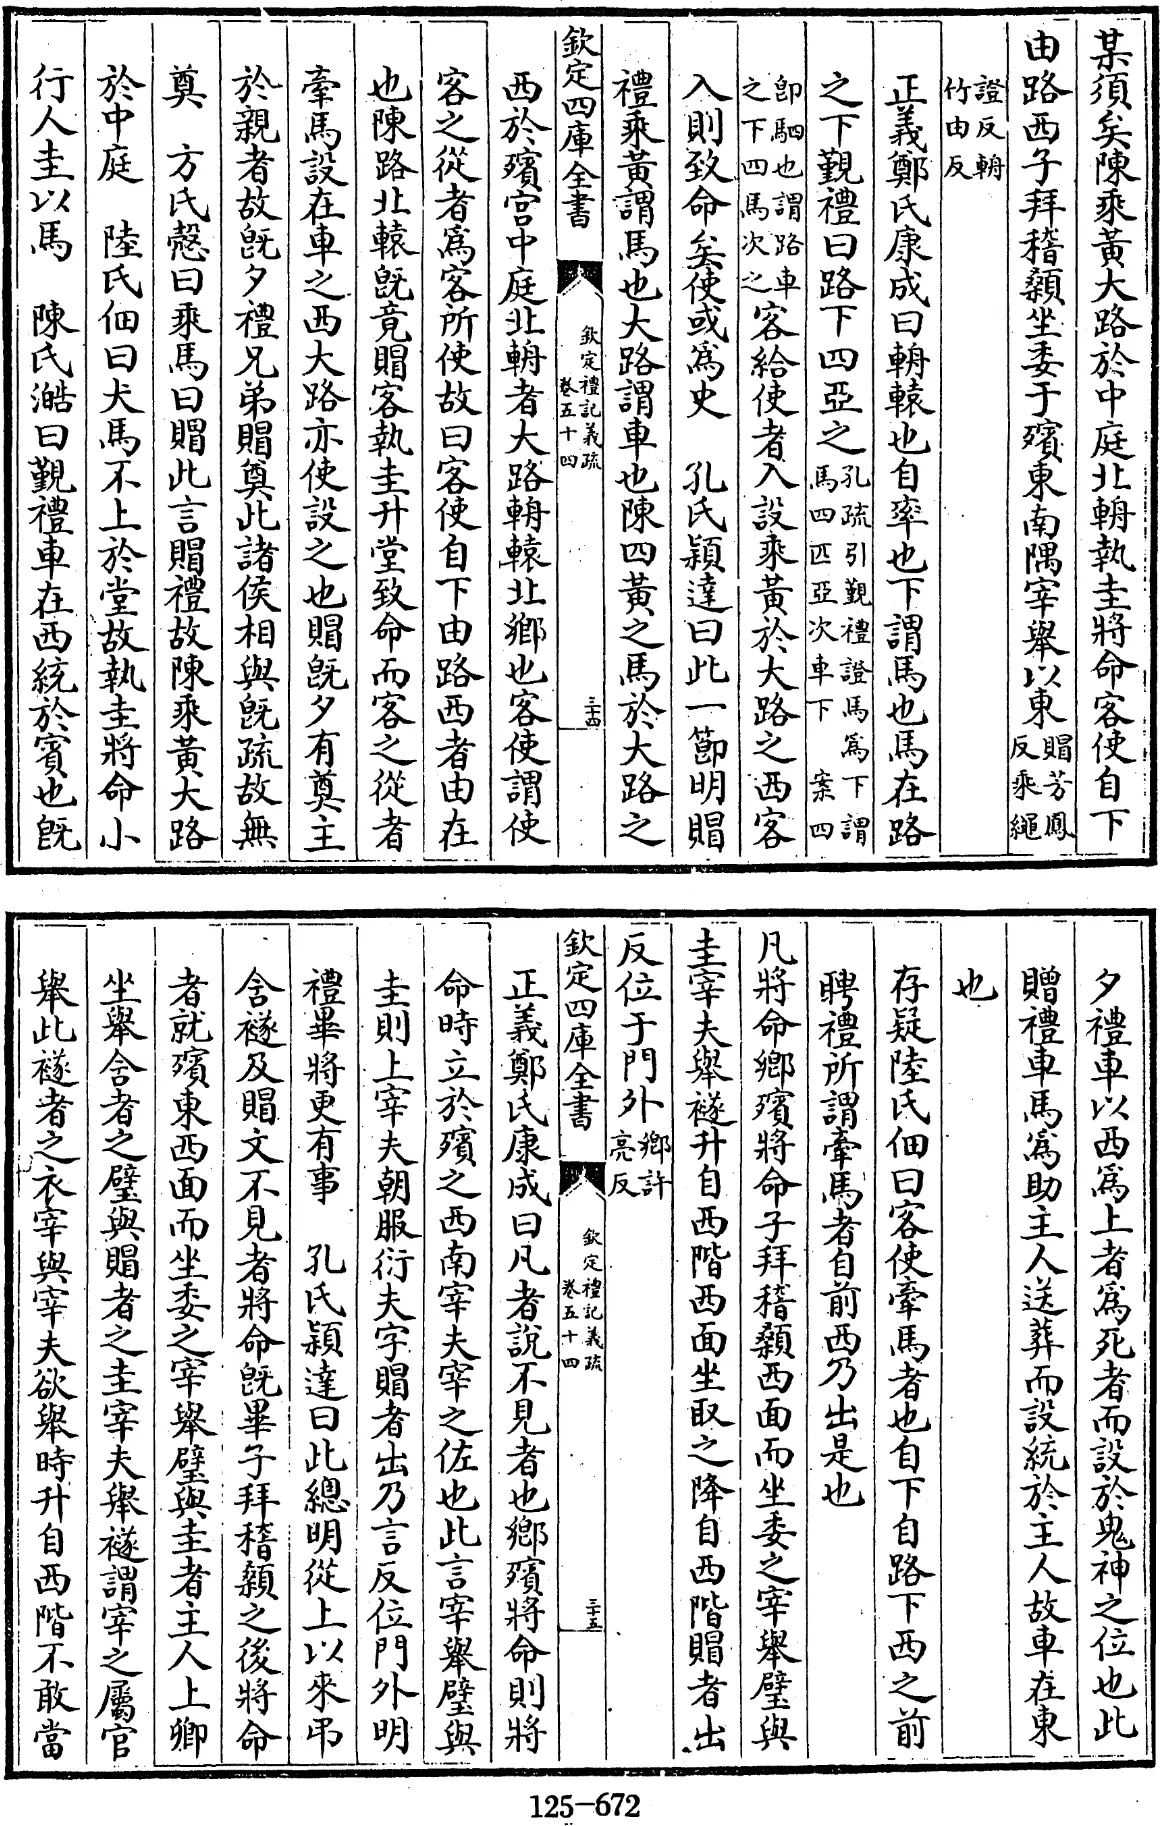 某須矣陳乘黃大路於中庭北輈執圭將命客使自下
由路西子拜稽顙坐委于殯東南隅宰舉以東賵芳鳳反乘繩
證反輈竹由反
正義鄭氏康成曰輈轅也自率也下謂馬也馬在路
之下覲禮曰路下四亞之孔疏引覲禮證馬爲下謂馬四匹亞次車下 案四
卽駟也謂路車之下四馬次之客給使者入設乘黃於大路之西客
入則致命矣使或爲史 孔氏穎達曰此一節明賵
禮乘黃謂馬也大路謂車也陳四黃之馬於大路之
欽定四庫全書 欽定禮記義疏 卷五十四 三十四
西於殯宮中庭北輈者大路輈轅北鄉也客使謂使
客之從者爲客所使故曰客使自下由路西者由在
也陳路北轅旣竟賵客執圭升堂致命而客之從者
牽馬設在車之西大路亦使設之也賵旣夕有奠主
於親者故旣夕禮兄弟賵奠此諸侯相與旣疏故無
奠 方氏慤曰乘馬曰賵此言賵禮故陳乘黃大路
於中庭 陸氏佃曰犬馬不上於堂故執圭將命小
行人圭以馬 陳氏澔曰覲禮車在西統於賓也旣
夕禮車以西爲上者爲死者而設於鬼神之位也此
贈禮車馬爲助主人送葬而設統於主人故車在東
也
存疑陸氏佃曰客使牽馬者也自下自路下西之前
聘禮所謂牽馬者自前西乃出是也
凡將命鄉殯將命子拜稽顙西面而坐委之宰舉璧與
圭宰夫舉襚升自西階西面坐取之降自西階賵者出
反位于門外鄉許亮反
欽定四庫全書 欽定禮記義疏 卷五十四 三十五
正義鄭氏康成曰凡者說不見者也鄉殯將命則將
命時立於殯之西南宰夫宰之佐也此言宰舉璧與
圭則上宰夫朝服衍夫字賵者出乃言反位門外明
禮畢將更有事 孔氏穎達曰此總明從上以來弔
含襚及賵文不見者將命旣畢子拜稽顙之後將命
者就殯東西面而坐委之宰舉璧與圭者主人上卿
坐舉含者之璧與賵者之圭宰夫舉襚謂宰之屬官
舉此襚者之衣宰與宰夫欲舉時升自西階不敢當
125-672